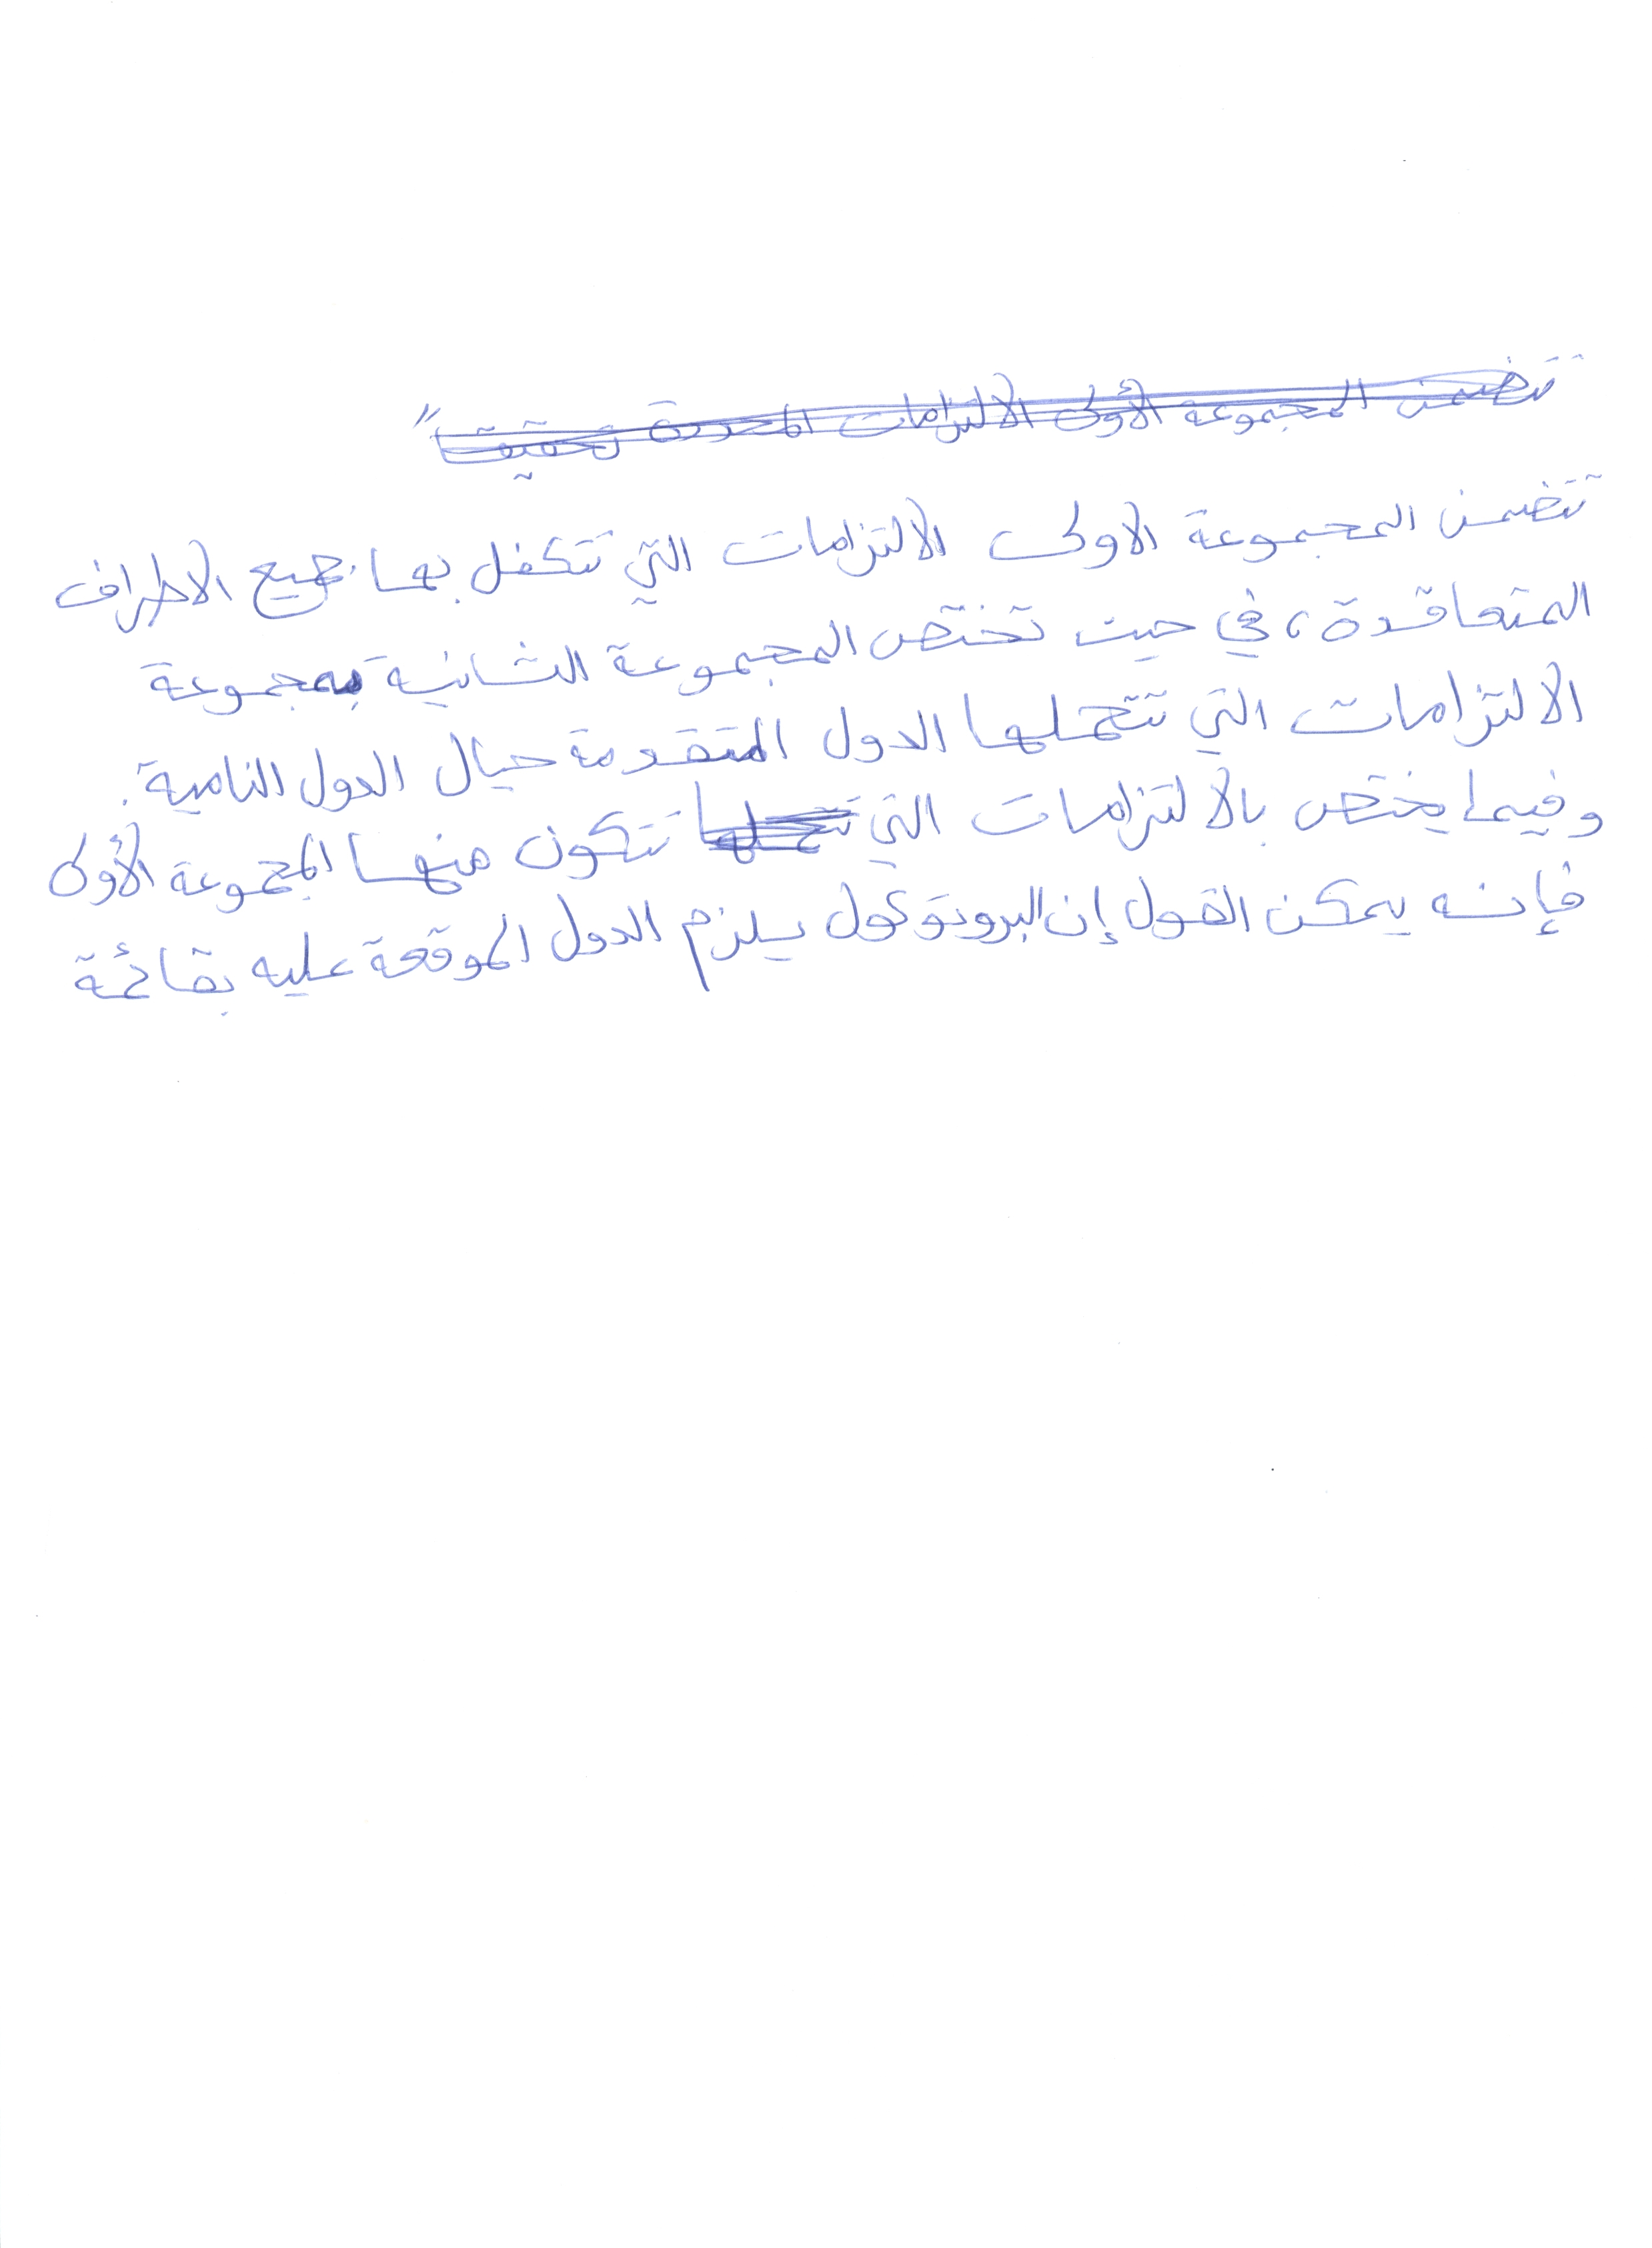 تتضمن المجموعة الأولى الالتزامات المحددة
تتضمن المجموعة الاولى الالتزامات التي تتكفل بها جميع الاطراف
المتعاقدة، في حين تختص المجموعة الثانية بمجموعة
الالتزامات التي تتحملها الدول المتقدمة حيال الدول النامية.
وفيما يختص بالالتزامات التي تتحملها تتكون منها المجموعة الأولى
فإنه يمكن القول إن البروتوكول يلزم الدول الموقعة عليه بقائمة